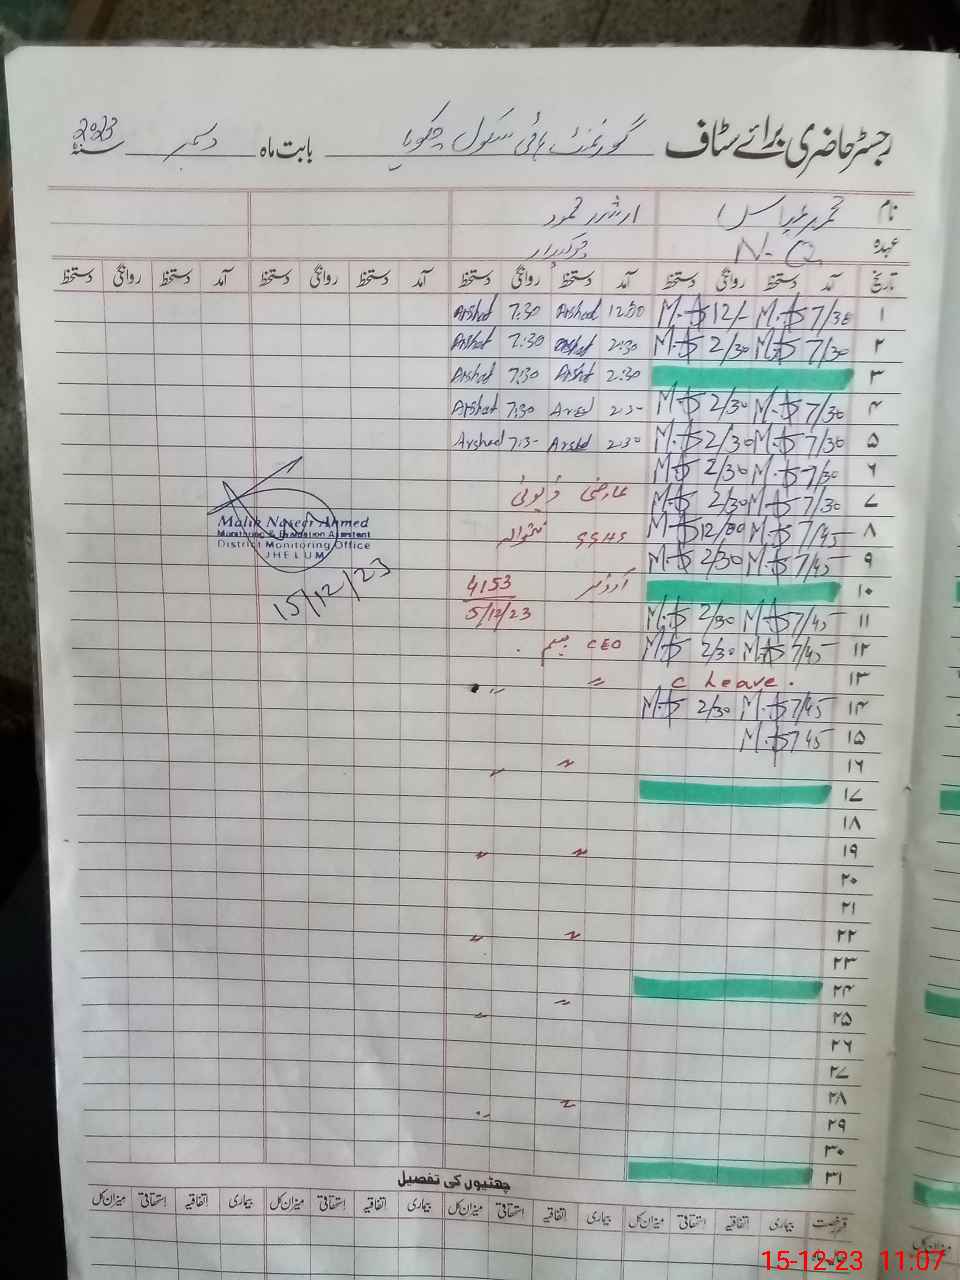 رجسٹر حاضری برائے سٹاف گورنمنٹ ہائی سکول بابت ماہ دسمبر سنہ 2023
نام محمد عباس ارشد محمود
عہدہ N-Q چوکیدار
تاریخ آمد دستخط روانگی دستخط آمد دستخط روانگی دستخط آمد دستخط روانگی دستخط آمد دستخط روانگی دستخط
۱ 7/30 M.A 12/- M.A 12:00 Arshad 7:30 Arshad
۲ 7/30 M.A 2/30 M.A 2:30 Arshad 7:30 Arshad
۳ 2:30 Arshad 7:30 Arshad
۴ 7/30 M.A 2/30 M.A 2:30 Arshad 7:30 Arshad
۵ 7/30 M.A 2/30 M.A 2:30 Arshad 7:30 Arshad
۶ 7/30 M.A 2/30 M.A
۷ 7/30 M.A 2/30 M.A عارضی ڈیوٹی
۸ 7/45 M.A 12/30 M.A GGHS
۹ 7/45 M.A 2/30 M.A
۱۰ آرڈر 4153
۱۱ 7/45 M.A 2/30 M.A 5/12/23
۱۲ 7/45 M.A 2/30 M.A CEO جہلم
۱۳ C Leave. 〃 〃
۱۴ 7/45 M.A 2/30 M.A
۱۵ 7 45 M.A
۱۶ 〃 〃
۱۷
۱۸
۱۹ 〃 〃
۲۰
۲۱
۲۲ 〃 〃
۲۳
۲۴
۲۵ 〃 〃
۲۶
۲۷
۲۸ 〃 〃
۲۹
۳۰
۳۱
Malik Naseer Ahmed
Monitoring & Evaluation Assistant
District Monitoring Office
JHELUM
15/12/23
چھٹیوں کی تفصیل
قسم رخصت بیماری اتفاقیہ استحقاقی میزان کل بیماری اتفاقیہ استحقاقی میزان کل بیماری اتفاقیہ استحقاقی میزان کل بیماری اتفاقیہ استحقاقی میزان کل
میزان کل
15-12-23 11:07